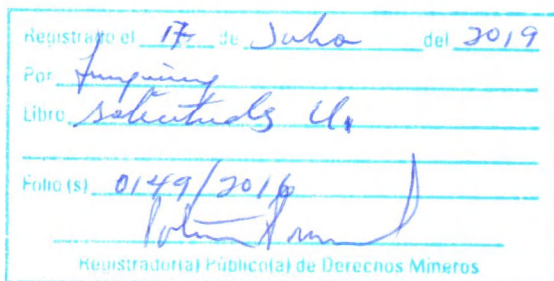 Registrado el 17 de Julio del 2019
Por
Libro solicitudes
Folio (s) 0149/2016
Registrador(a) Público(a) de Derechos Mineros